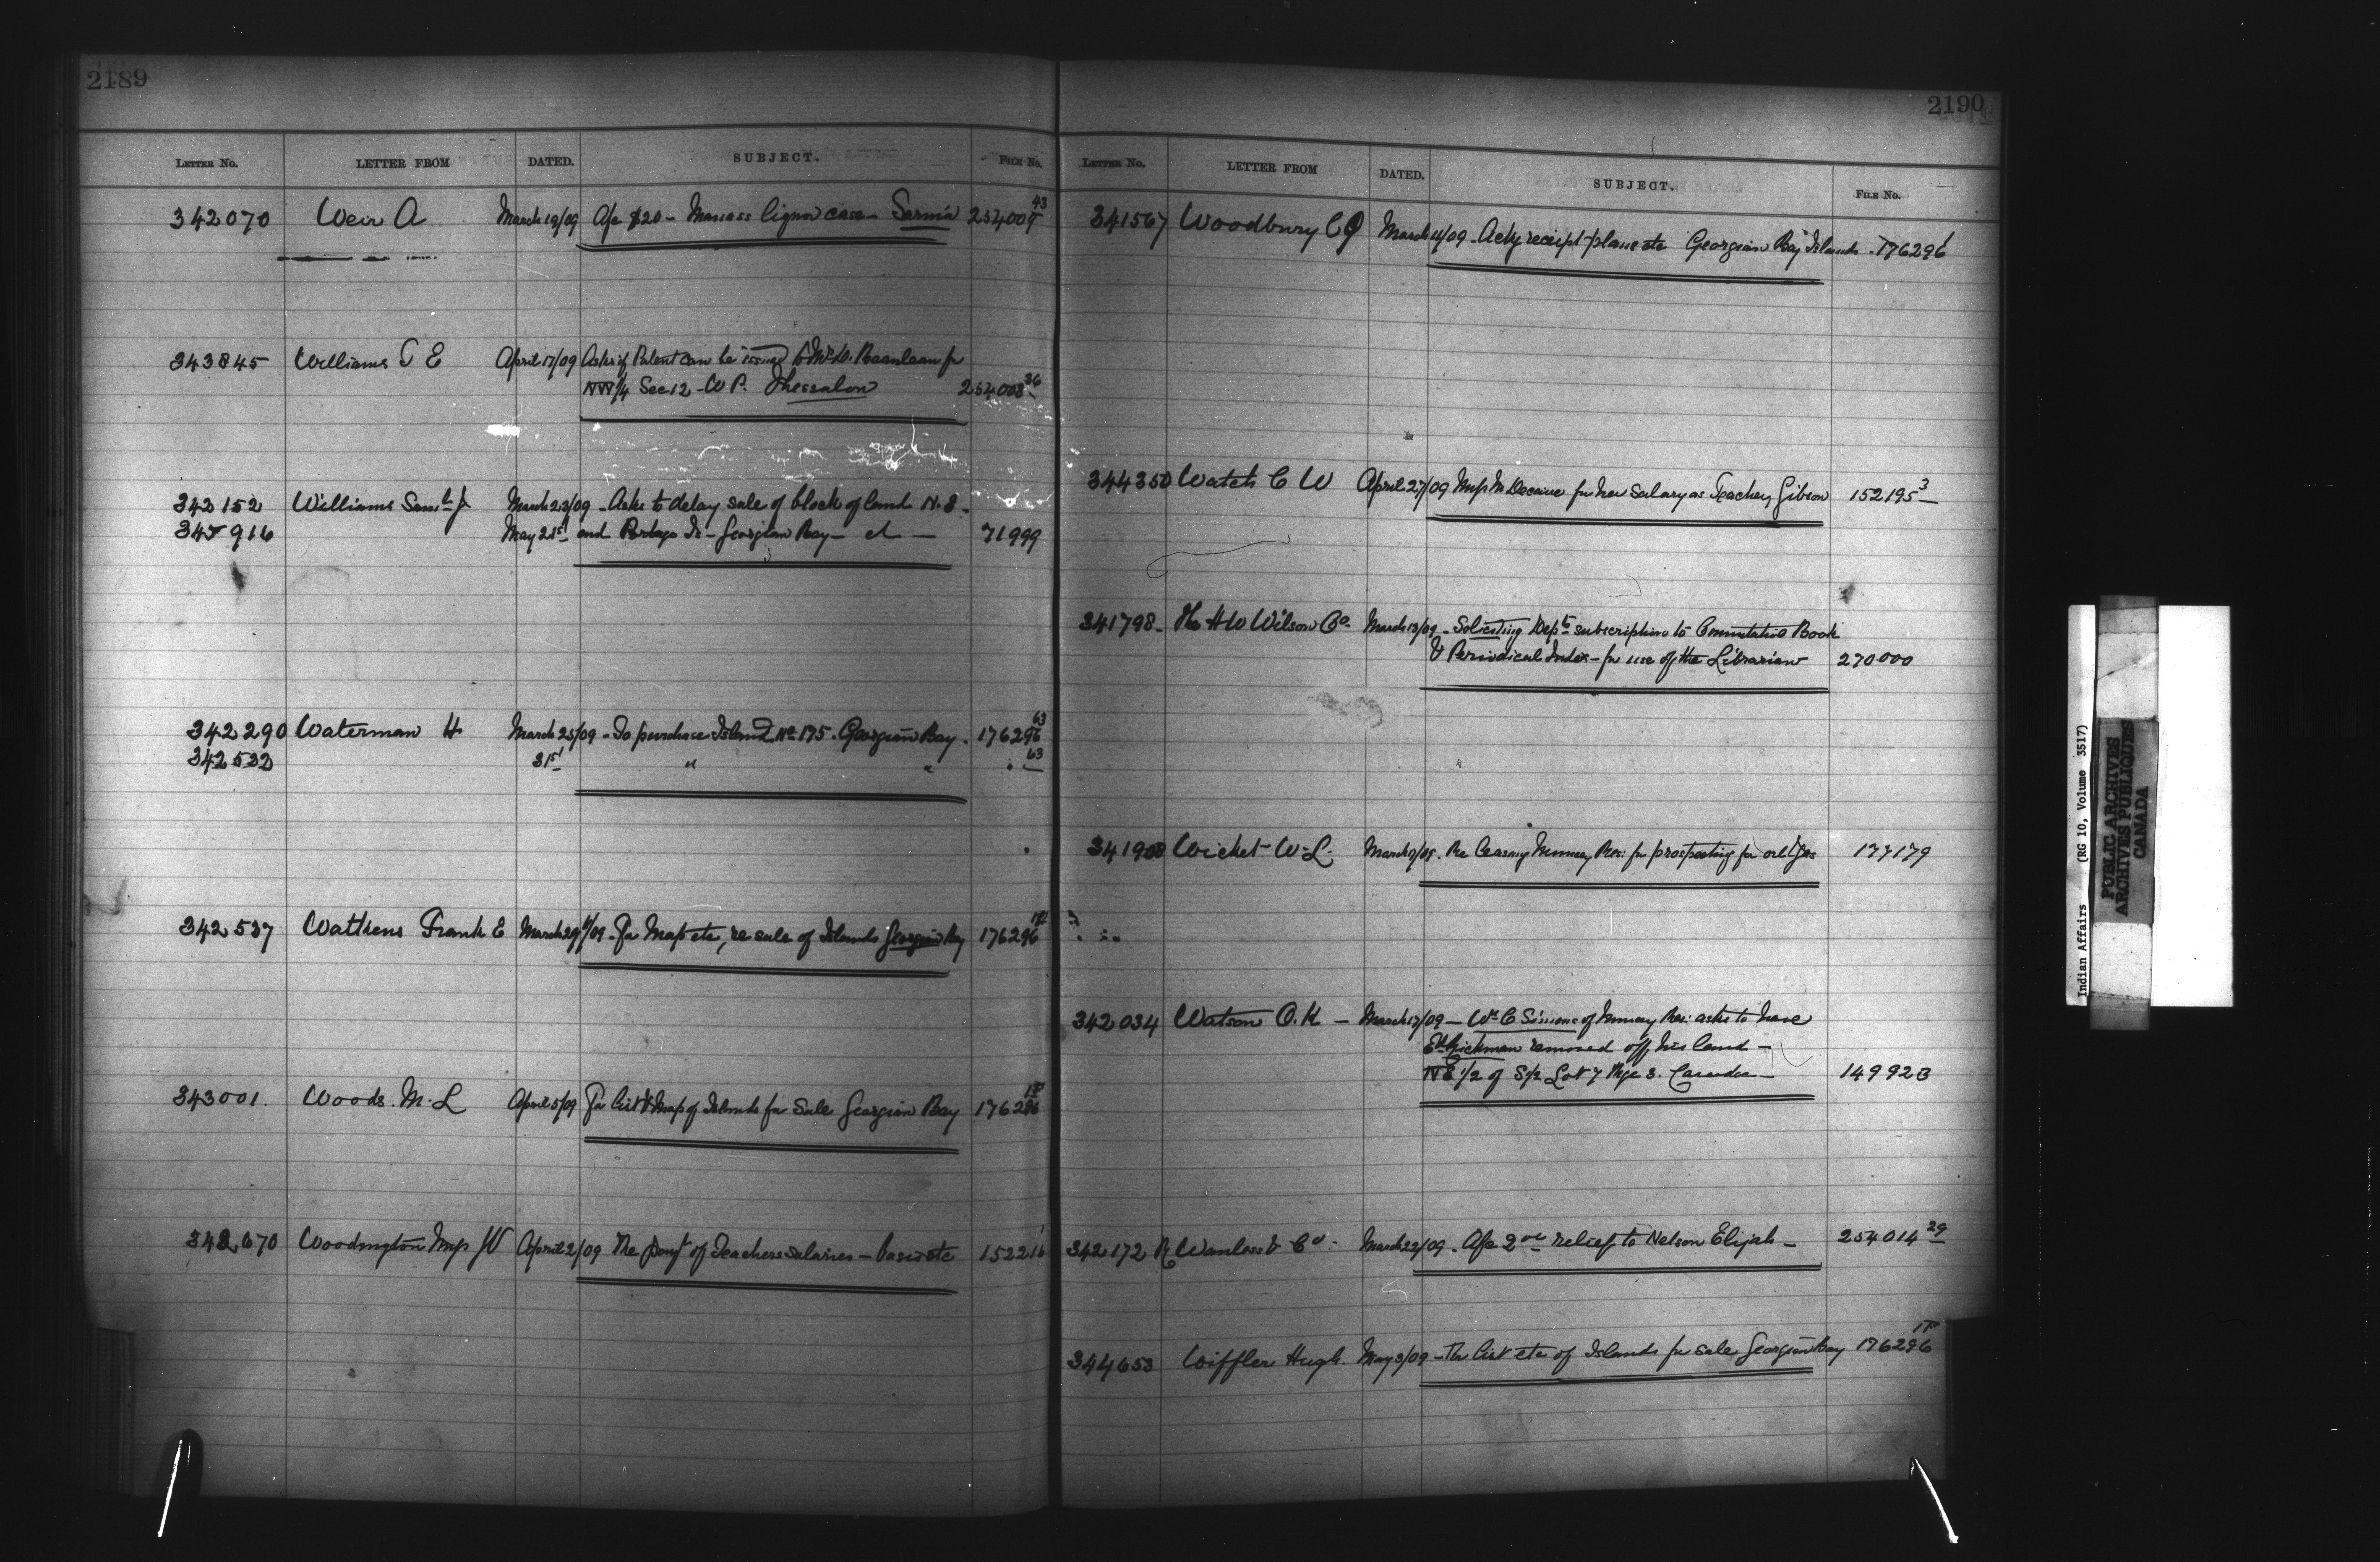 2189
LETTER NO. LETTER FROM DATED. SUBJECT. FILE No.
342070 Weir A March 19/09 A/c $20 - Manass liquor case - Sarnia 254009 43
343845 Williams T E April 17/09 Asks if Patent can be issued to Mr. W. for
NW 1/4 Sec 12 - W P. Thessalon 254008 36
342152 Williams Saml J March 23/09 - Asks to delay sale of block of land N. E.
345916 May 21st and Portage Is - Georgian Bay - 71999
342290 Waterman H March 25/09 - To purchase Island No 175. Georgian Bay. 176296 63
342532 31st " " " 63
342537 Watkens Frank E March 29th/09 - For Map etc, re sale of Islands Georgian Bay 176296
343001. Woods. M. L April 5/09 For List & Map of Islands for Sale Georgian Bay 176296
342670 Miss W April 2/09 Re of Teachers salaries - 152216
2190
LETTER NO. LETTER FROM DATED. SUBJECT. FILE No.
341567 Woodbury C March 11/09 - Ackg receipt plans etc Georgian Bay Islands - 176296 1
344350 Watch C W April 27/09 for her salary as Teacher, Gibson 152195 3
341798 - The H W Wilson Co. March 13/09 - Soliciting Dept's subscription to Cumulative Book
& Periodical Index - for use of the Librarian 270000
341908 Wicket W. L. March 9/09. Re leasing Muncey Res: for prospecting for oil & gas 177179
342034 Watson O. K - March 17/09 - Wm C Simons of Muncey Res: asks to have
removed off his land -
NE 1/2 of S/2 Lot 7 Rge 3. Caradoc - 149923
342172 R Wanless & Co. March 22/09 - A/c 2.00 relief to Nelson Elijah - 254014 29
344653 Wiffler Hugh. May 3/09 - For list etc of Islands for sale Georgian Bay 176296
Indian Affairs (RG 10, Volume 3517)
PUBLIC ARCHIVES
ARCHIVES PUBLIQUES
CANADA